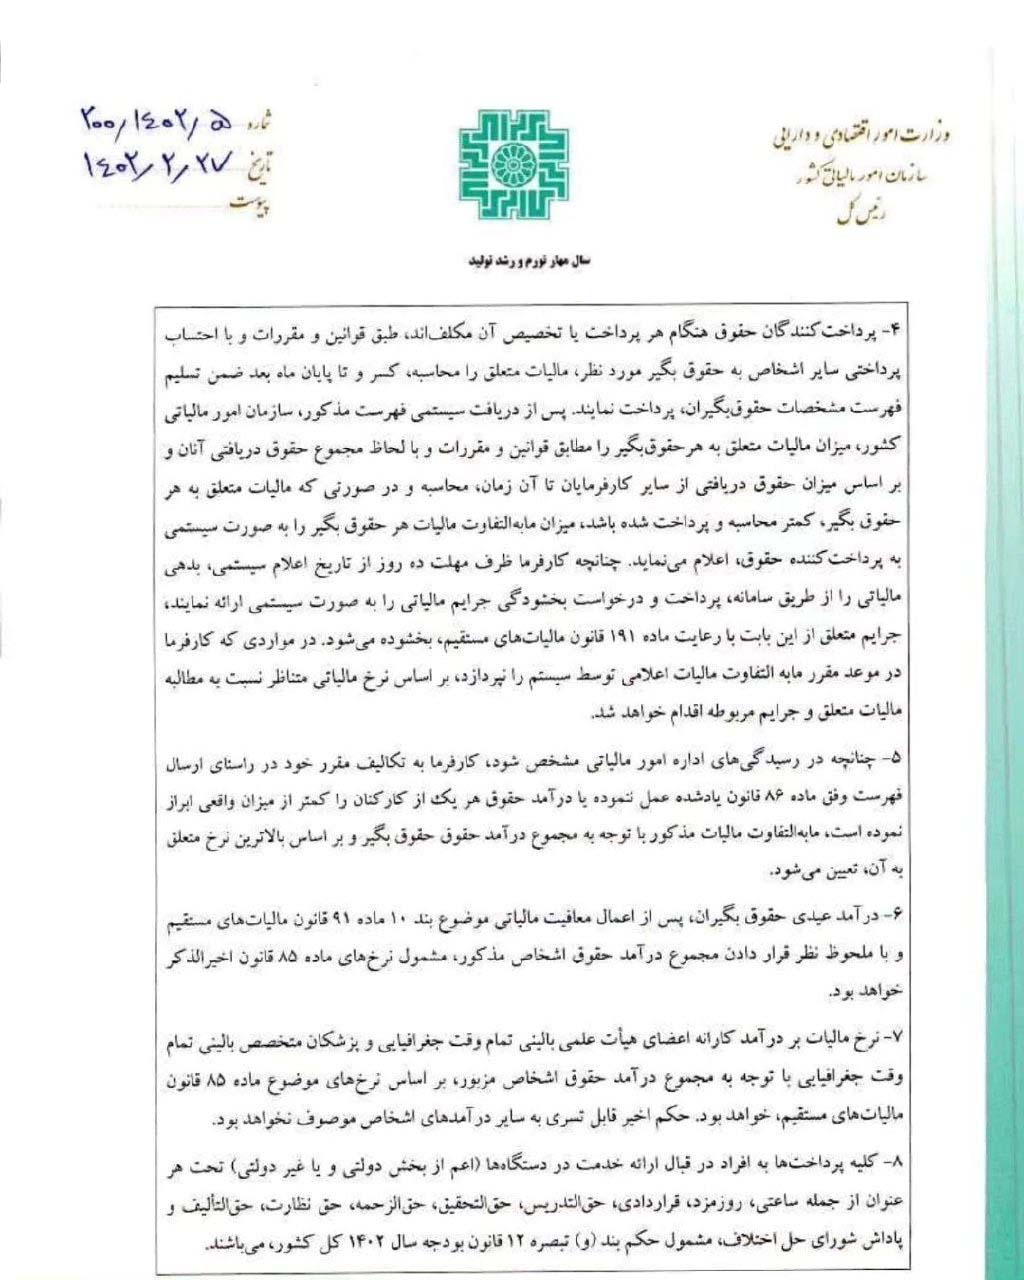 وزارت امور اقتصادی و دارایی
سازمان امور مالیاتی کشور
رئیس کل
شماره ۲۰۰/۱۴۰۲/۵
تاریخ ۱۴۰۲/۲/۲۷
پیوست
سال مهار تورم و رشد تولید
۴- پرداخت‌کنندگان حقوق هنگام هر پرداخت یا تخصیص آن مکلف‌اند، طبق قوانین و مقررات و با احتساب
پرداختی سایر اشخاص به حقوق بگیر مورد نظر، مالیات متعلق را محاسبه، کسر و تا پایان ماه بعد ضمن تسلیم
فهرست مشخصات حقوق‌بگیران، پرداخت نمایند. پس از دریافت سیستمی فهرست مذکور، سازمان امور مالیاتی
کشور، میزان مالیات متعلق به هرحقوق‌بگیر را مطابق قوانین و مقررات و با لحاظ مجموع حقوق دریافتی آنان و
بر اساس میزان حقوق دریافتی از سایر کارفرمایان تا آن زمان، محاسبه و در صورتی که مالیات متعلق به هر
حقوق بگیر، کمتر محاسبه و پرداخت شده باشد، میزان مابه‌التفاوت مالیات هر حقوق بگیر را به صورت سیستمی
به پرداخت‌کننده حقوق، اعلام می‌نماید. چنانچه کارفرما ظرف مهلت ده روز از تاریخ اعلام سیستمی، بدهی
مالیاتی را از طریق سامانه، پرداخت و درخواست بخشودگی جرایم مالیاتی را به صورت سیستمی ارائه نمایند،
جرایم متعلق از این بابت با رعایت ماده ۱۹۱ قانون مالیات‌های مستقیم، بخشوده می‌شود. در مواردی که کارفرما
در موعد مقرر مابه التفاوت مالیات اعلامی توسط سیستم را نپردازد، بر اساس نرخ مالیاتی متناظر نسبت به مطالبه
مالیات متعلق و جرایم مربوطه اقدام خواهد شد.
۵- چنانچه در رسیدگی‌های اداره امور مالیاتی مشخص شود، کارفرما به تکالیف مقرر خود در راستای ارسال
فهرست وفق ماده ۸۶ قانون یادشده عمل ننموده یا درآمد حقوق هر یک از کارکنان را کمتر از میزان واقعی ابراز
نموده است، مابه‌التفاوت مالیات مذکور با توجه به مجموع درآمد حقوق حقوق بگیر و بر اساس بالاترین نرخ متعلق
به آن، تعیین می‌شود.
۶- درآمد عیدی حقوق بگیران، پس از اعمال معافیت مالیاتی موضوع بند ۱۰ ماده ۹۱ قانون مالیات‌های مستقیم
و با ملحوظ نظر قرار دادن مجموع درآمد حقوق اشخاص مذکور، مشمول نرخ‌های ماده ۸۵ قانون اخیرالذکر
خواهد بود.
۷- نرخ مالیات بر درآمد کارانه اعضای هیأت علمی بالینی تمام وقت جغرافیایی و پزشکان متخصص بالینی تمام
وقت جغرافیایی با توجه به مجموع درآمد حقوق اشخاص مزبور، بر اساس نرخ‌های موضوع ماده ۸۵ قانون
مالیات‌های مستقیم، خواهد بود. حکم اخیر قابل تسری به سایر درآمدهای اشخاص موصوف نخواهد بود.
۸- کلیه پرداخت‌ها به افراد در قبال ارائه خدمت در دستگاه‌ها (اعم از بخش دولتی و یا غیر دولتی) تحت هر
عنوان از جمله ساعتی، روزمزد، قراردادی، حق‌التدریس، حق‌التحقیق، حق‌الزحمه، حق نظارت، حق‌التألیف و
پاداش شورای حل اختلاف، مشمول حکم بند (و) تبصره ۱۲ قانون بودجه سال ۱۴۰۲ کل کشور، می‌باشند.